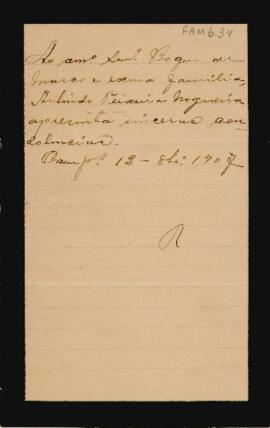 FAM 6.34
Ao amº Senr. Roque de
Marco e exma familia,
Arlindo Teixeira Nogueira
apresenta sinceras con
dolencias.
Campˢ. 12 - 8bº 1907